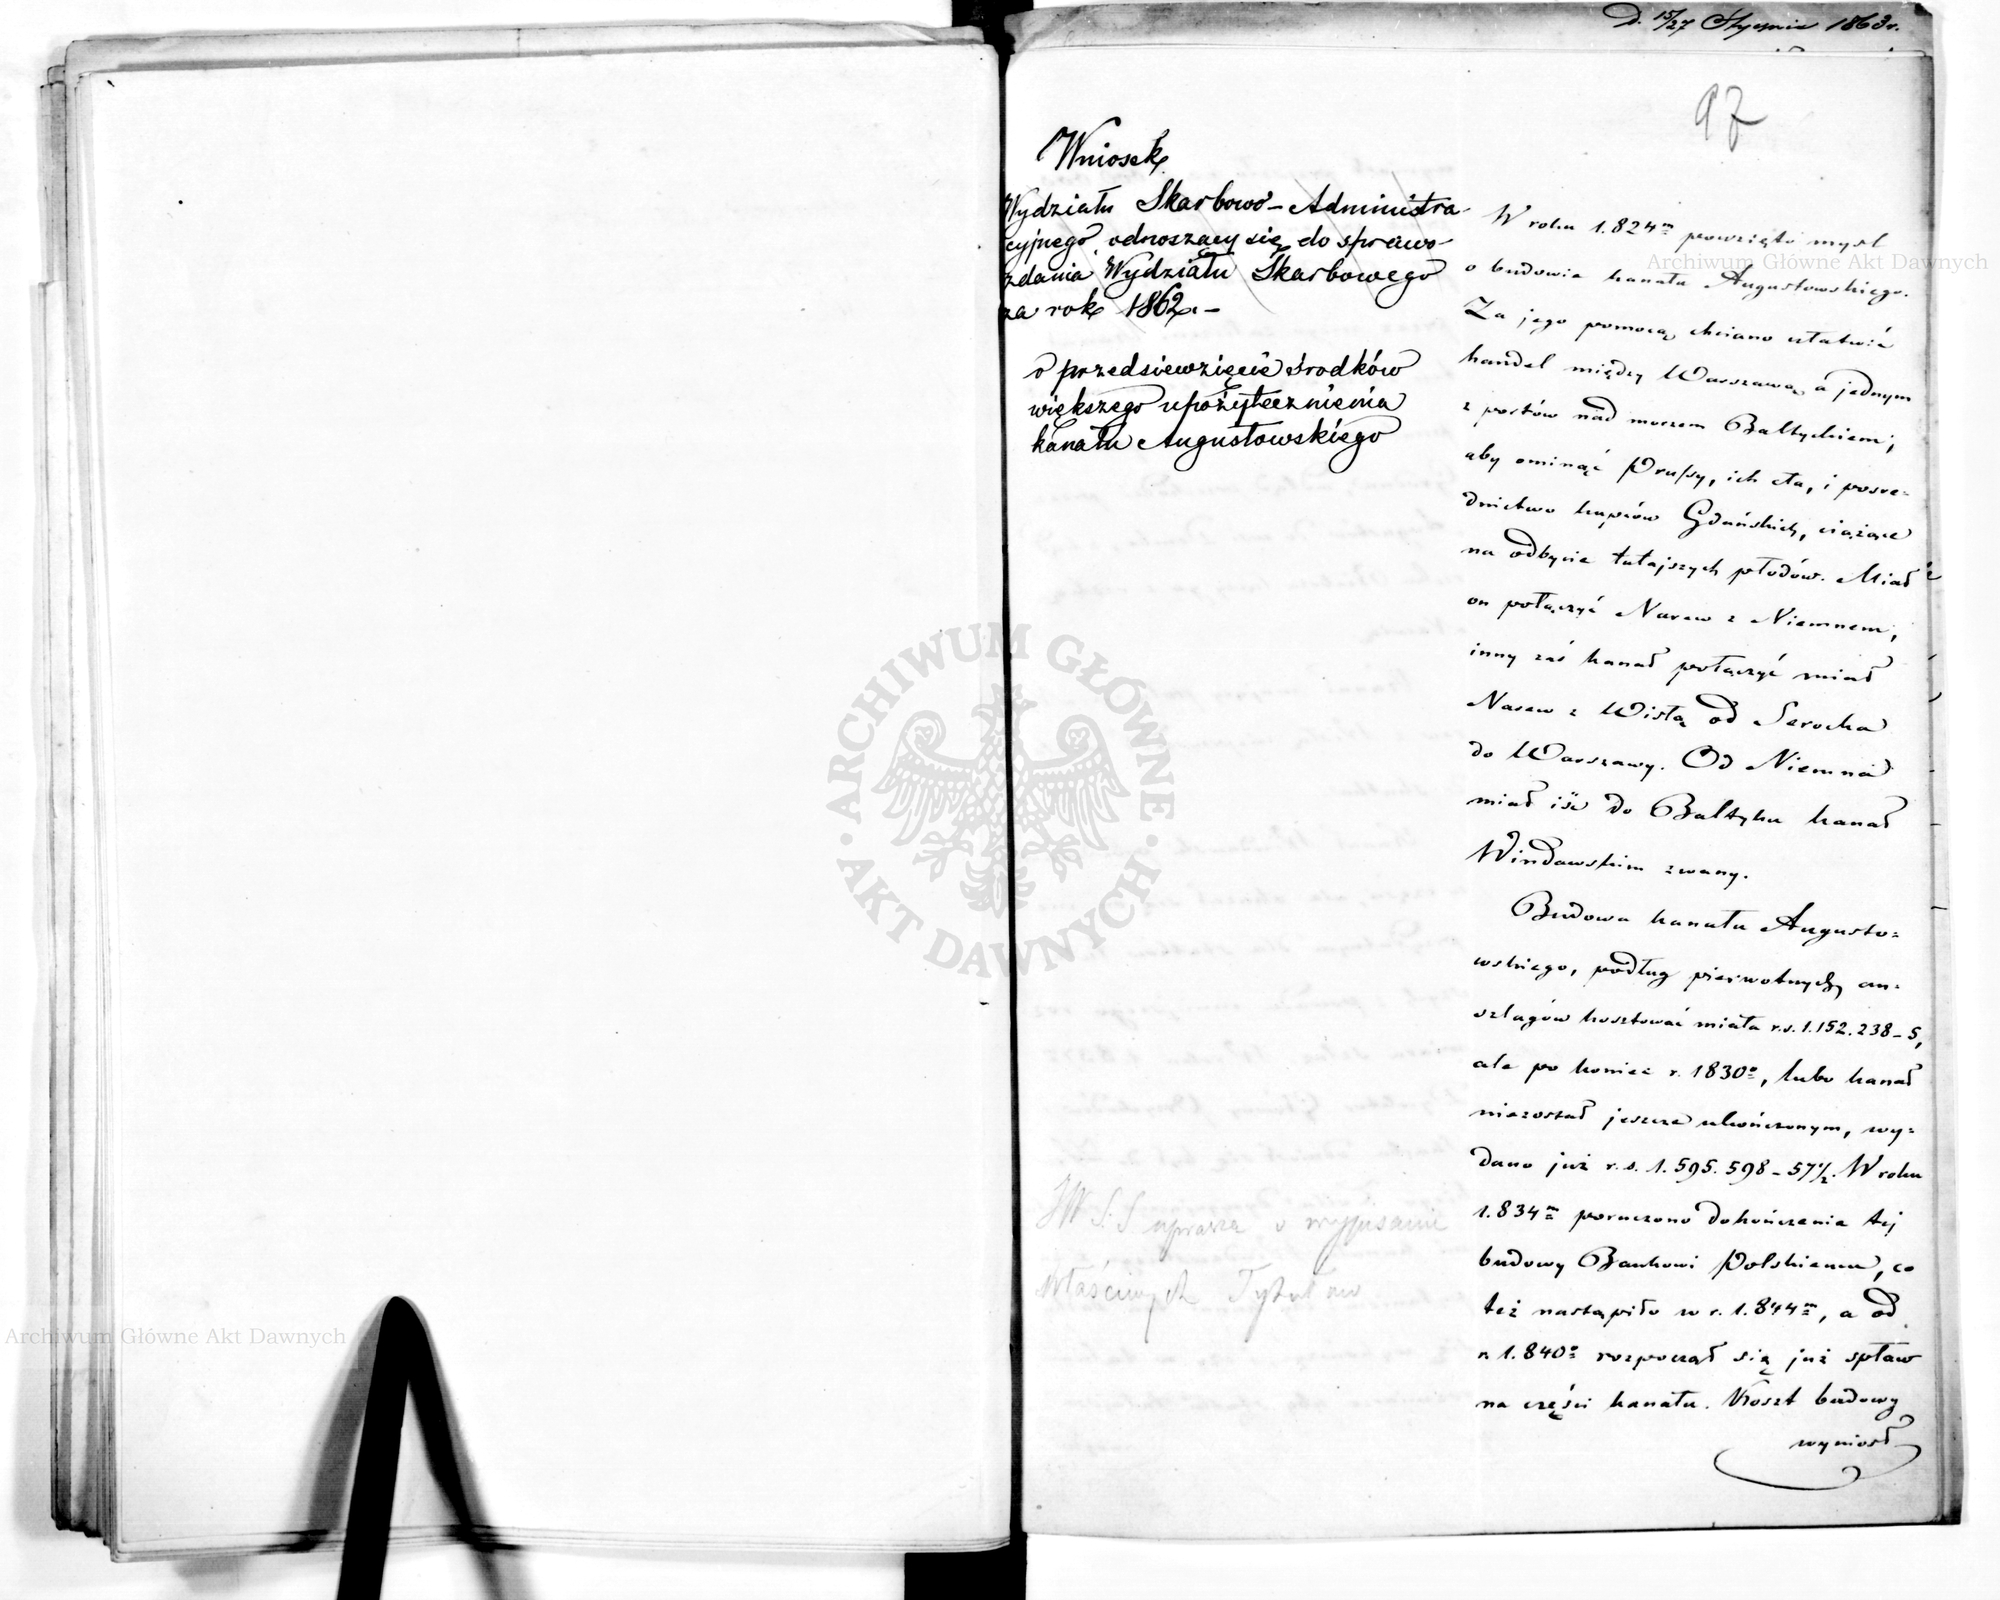 D. 15/27 Stycznia 1863 r.
97
Wniosek
Wydziału Skarbowo-Administra-
cyjnego odnoszący się do sprawo-
zdania Wydziału Skarbowego
za rok 1862.-
o przedsiewzięcie środków
większego upożytecznienia
kanału Augustowskiego
JW S.S uprasza o wypisanie
właściwych Tytułów
W roku 1.824m powzięto mysl
o budowie kanału Augustowskiego.
Za jego pomocą chciano ułatwić
handel między Warszawą a jednym
z portów nad morzem Baltyckiem;
aby ominąć Prussy, ich cła, i posre=
dnictwo kupców Gdańskich, ciążące
na odbycie tutajszych płodów. Miał
on połączyć Narew z Niemnem,
inny zaś kanał połączyć miał
Narew z Wisłą od Serocka
do Warszawy. Od Niemna
miał iść do Baltyku kanał
Windawskim zwany.
Budowa kanału Augusto=
wskiego, podług pierwotnych an=
szlagów kosztować miała r.s. 1.152.238-5,
ale po koniec r. 1830o, lubo kanał
niezostał jeszcze ukończonym, wy=
dano już r.s. 1.595.598-57½. W roku
1.834m poruczono dokończenie tej
budowy Bankowi Polskiemu, co
też nastąpiło w r. 1.844m, a od
r. 1.840o rozpoczął się już spław
na części kanału. Koszt budowy
wyniosł
Archiwum Główne Akt Dawnych
ARCHIWUM GŁÓWNE · AKT DAWNYCH ·
Archiwum Główne Akt Dawnych